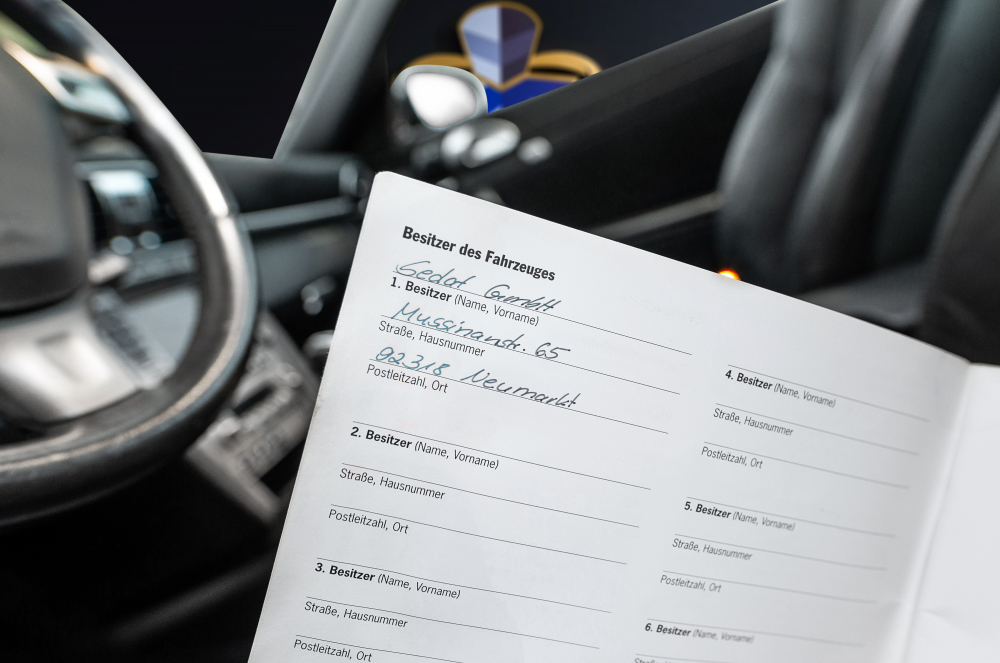 Besitzer des Fahrzeuges
Sedat
1. Besitzer (Name, Vorname)
Mussinanstr. 65
Straße, Hausnummer
92318 Neumarkt
Postleitzahl, Ort
2. Besitzer (Name, Vorname)
Straße, Hausnummer
Postleitzahl, Ort
3. Besitzer (Name, Vorname)
Straße, Hausnummer
Postleitzahl, Ort
4. Besitzer (Name, Vorname)
Straße, Hausnummer
Postleitzahl, Ort
5. Besitzer (Name, Vorname)
Straße, Hausnummer
Postleitzahl, Ort
6. Besitzer (Name, Vorname)